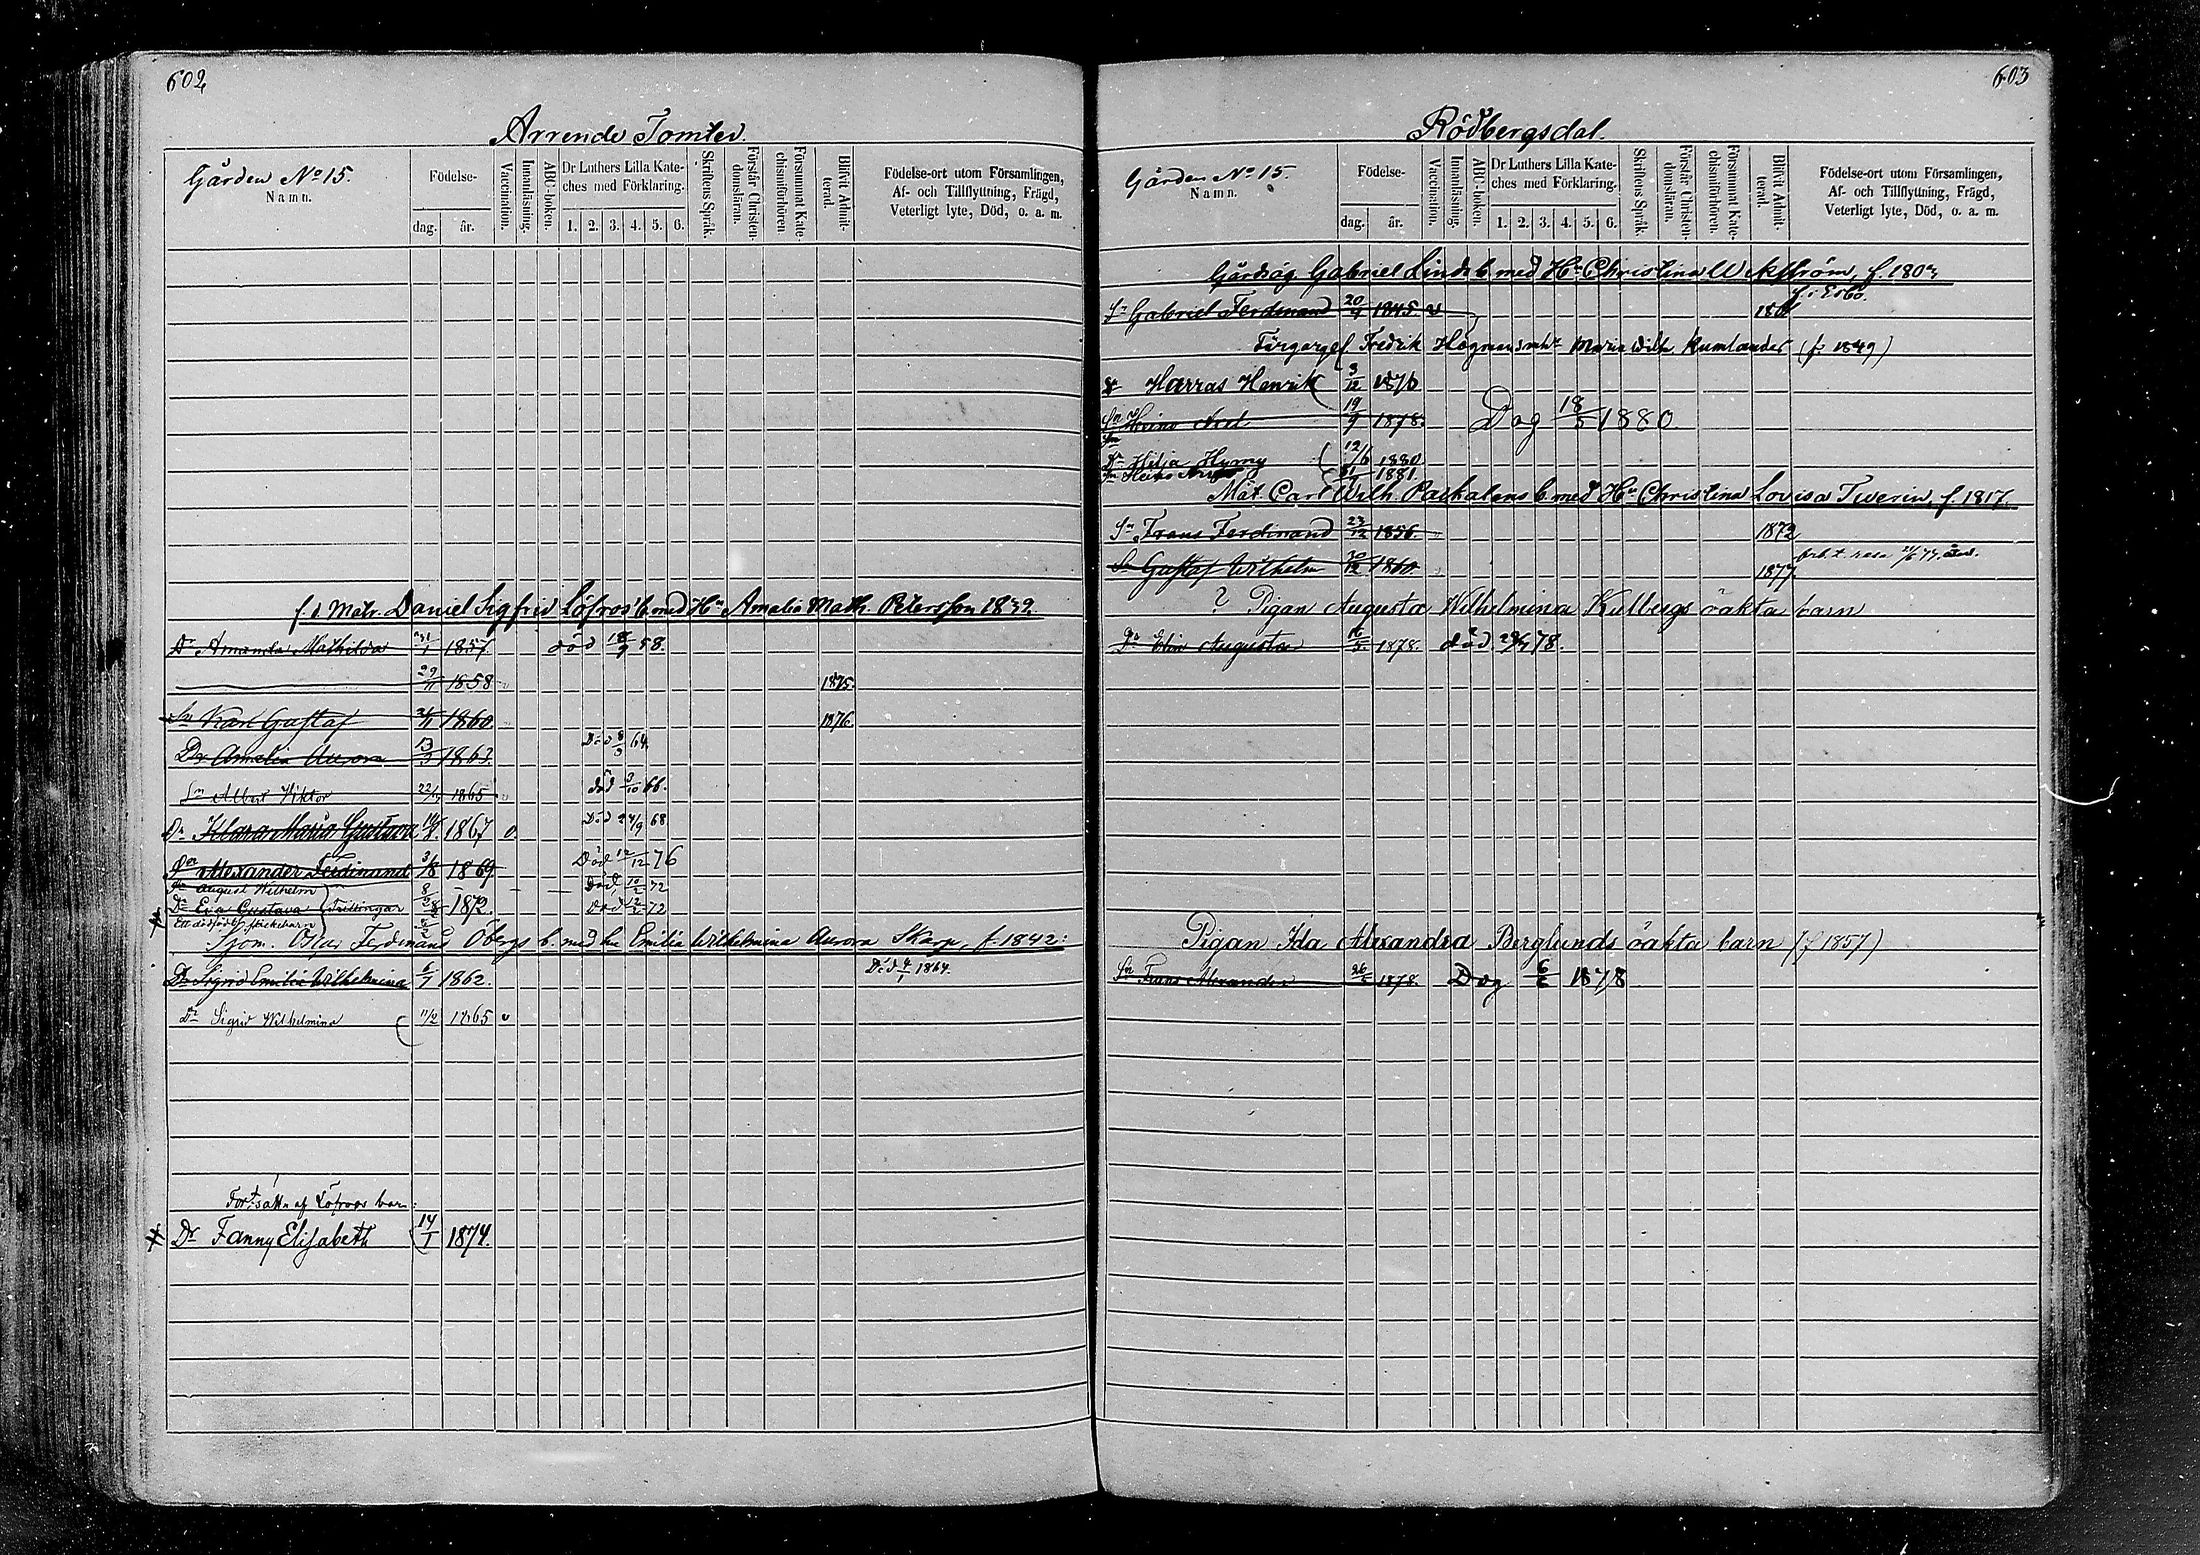 602
Arrende Tomter.
Gården No 15.
Namn.
Födelse-
dag. år.
Vaccination.
Innanläsning.
ABC-boken.
Dr Luthers Lilla Kate-
ches med Förklaring.
1. 2. 3. 4. 5. 6.
Skriftens Språk.
Förstår Christen-
domsläran.
Försummat Kate-
chismiförhören
Blifvit Admit-
terad.
Födelse-ort utom Församlingen,
Af- och Tillflyttning, Frägd,
Veterligt lyte, Död, o. a. m.
f. d. Matr. Daniel Sigfrid Löfroos' b. med Hu Amalia Math. Petersson 1832.
Dr Amanda Mathilda 31/1 1857. död 18/9 58.
29/11 1858 1875.
Sn Karl Gustaf 1860. 1876.
Dr Amalia Aurora 13/3 1863. Död 8/3 64.
Sn Albert Viktor 1865 död 3/10 66.
Dr Klara Maria Gustava 1867 v Död 24/9 68
Alexander Ferdinand 3/8 1869 Död 12/12 76
August Wilhelm 8/2 Död 10/2 72
Dr Eva Gustava Trillingar 1872. död 12/2 72
Ett dödfödt flickebarn
Sjom. Oskar Ferdinand Öbergs b. med hu Emilia Wilhelmina Aurora Skarp f. 1842.
Dr Sigrid Emilia Wilhelmina 6/7 1862. Död 4/1 1864.
Dr Sigrid Wilhelmina 11/2 1865 v
Fortsättn af Löfroos barn:
Dr Fanny Elisabeth 14/1 1874.
603
Rödbergsdal.
Gården No 15.
Namn.
Födelse-
dag. år.
Vaccination.
Innanläsning.
ABC-boken.
Dr Luthers Lilla Kate-
ches med Förklaring.
1. 2. 3. 4. 5. 6.
Skriftens Språk.
Förstår Christen-
domsläran.
Försummat Kate-
chismiförhören.
Blifvit Admit-
terad.
Födelse-ort utom Församlingen,
Af- och Tillflyttning, Frägd,
Veterligt lyte, Död, o. a. m.
Gårdsäg Gabriel Linds b. med Hu Christina U. Ekström, f. 1802
Sn Gabriel Ferdinand 20/4 1845 v
Färgareges. Fredrik Högmans m hu Maria Wilh. Kumlander (f. 1849)
Harras Henrik 3/12 1876
Sn Heino Axel 19/9 1878. Dog 18/5 1880
Dr Hilja Hymy 12/6 1880
Sn Heino 1881
Måt. Carl Wilh. Packalens b. med Hu Christina Lovisa Twerin, f. 1817.
Sn Frans Ferdinand 23/12 1856. 1872
Sn Gustaf Wilhelm 10/12 1860. 1877.
? Pigan Augusta Wilhelmina Kulbergs oäkta barn
Dr Elin Augusta 16/3 1878. död 78.
Pigan Ida Alexandra Berglunds oäkta barn (f 1857)
Sn Frans Alexander 26/5 1878. Dog 6/6 1878